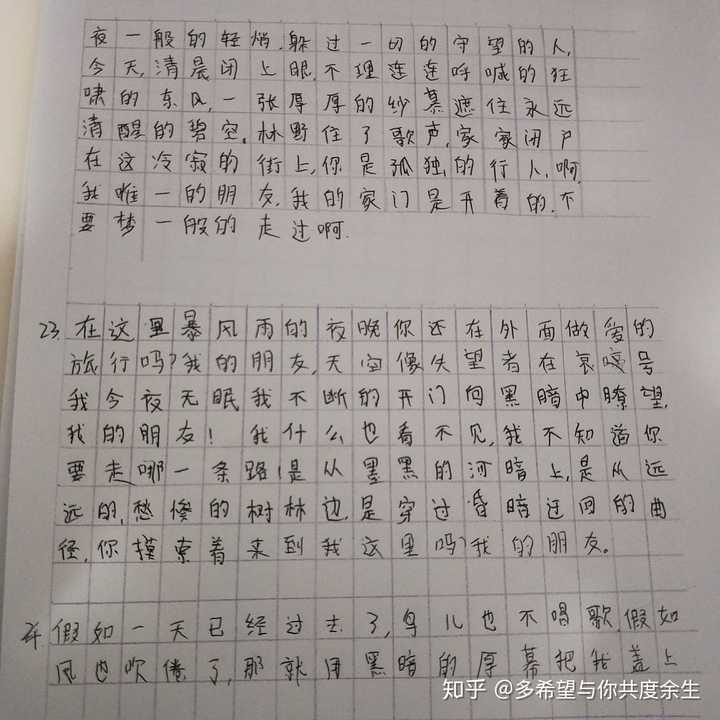 夜一般的轻悄,躲过一切的守望的人,
今天,清晨闭上眼,不理连连呼喊的狂
啸的东风,一张厚厚的纱幕遮住永远
清醒的碧空。林野住了歌声,家家闭户
在这冷寂的街上,你是孤独的行人,啊,
我唯一的朋友,我的家门是开着的,不
要梦一般的走过啊.
23.在这里暴风雨的夜晚你还在外面做爱的
旅行吗?我的朋友,天空像失望者在哀嚎号
我今夜无眠,我不断的开门向黑暗中瞭望,
我的朋友!我什么也看不见,我不知道你
要走哪一条路!是从墨黑的河暗上,是从远
远的,愁惨的树林边,是穿过昏暗迂回的曲
径,你摸索着来到我这里吗?我的朋友。
24.假如一天已经过去了,鸟儿也不唱歌,假如
风也吹倦了,那就用黑暗的厚幕把我盖上
知乎 @多希望与你共度余生